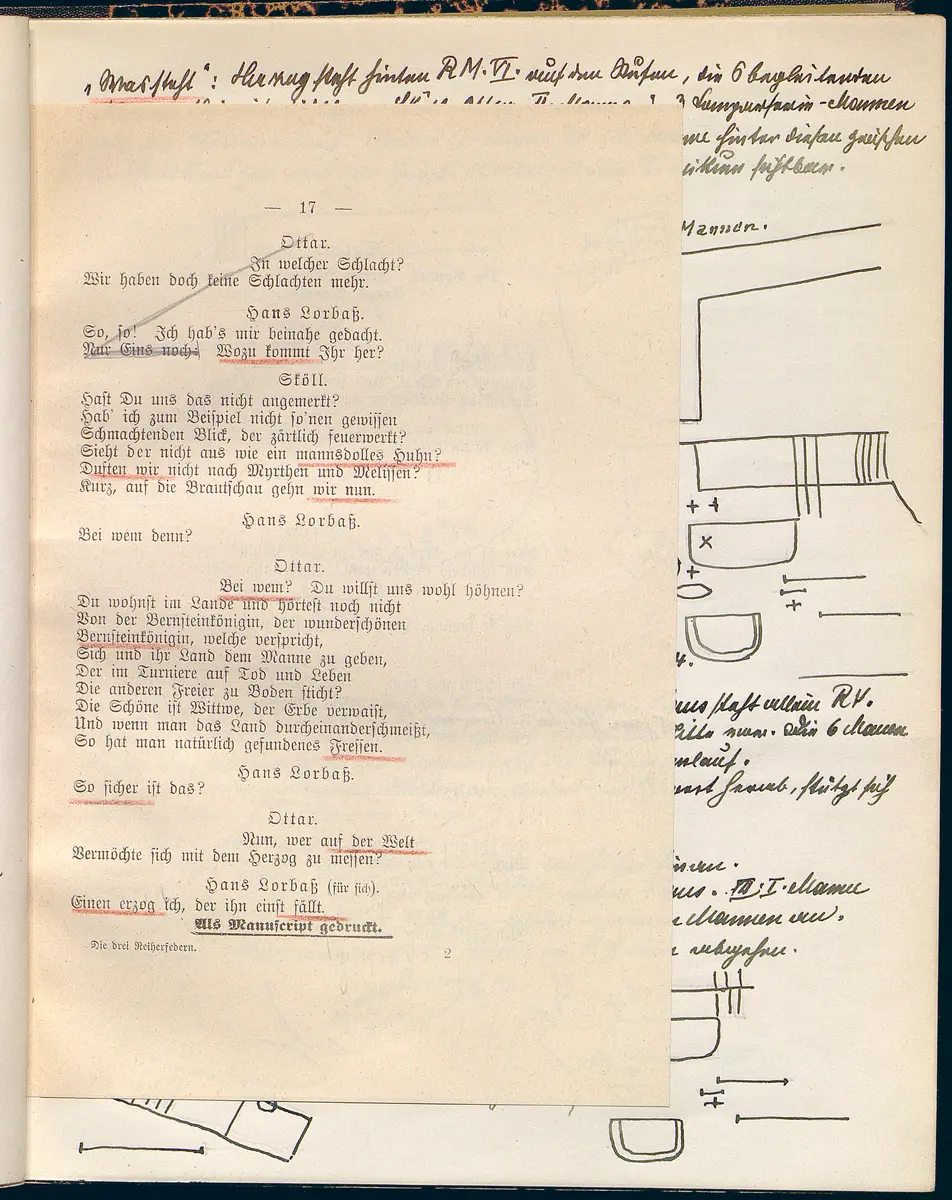 „Was steht": Herzog steht hinten R.M. VI. auf den Stufen, die 6 begleitenden
3 Komparserie-Mannen
hinter diesen zwischen
sichtbar.
Mannen.
— 17 —
Ottar.
In welcher Schlacht?
Wir haben doch keine Schlachten mehr.
Hans Lorbaß.
So, so! Ich hab's mir beinahe gedacht.
Nur Eins noch: Wozu kommt Ihr her?
Sköll.
Hast Du uns das nicht angemerkt?
Hab' ich zum Beispiel nicht so'nen gewissen
Schmachtenden Blick, der zärtlich feuerwerkt?
Sieht der nicht aus wie ein mannsdolles Huhn?
Duften wir nicht nach Myrthen und Melissen?
Kurz, auf die Brautschau gehn wir nun.
Hans Lorbaß.
Bei wem denn?
Ottar.
Bei wem? Du willst uns wohl höhnen?
Du wohnst im Lande und hörtest noch nicht
Von der Bernsteinkönigin, der wunderschönen
Bernsteinkönigin, welche verspricht,
Sich und ihr Land dem Manne zu geben,
Der im Turniere auf Tod und Leben
Die anderen Freier zu Boden sticht?
Die Schöne ist Wittwe, der Erbe verwaist,
Und wenn man das Land durcheinanderschmeißt,
So hat man natürlich gefundenes Fressen.
Hans Lorbaß.
So sicher ist das?
Ottar.
Nun, wer auf der Welt
Vermöchte sich mit dem Herzog zu messen?
Hans Lorbaß (für sich).
Einen erzog ich, der ihn einst fällt.
Als Manuscript gedruckt.
Die drei Reiherfedern.
2
4.
steht allein R4.
vor. Die 6 Mannen
herab, stützt sich
III. I. Mann
Mannen an.
abgehen.